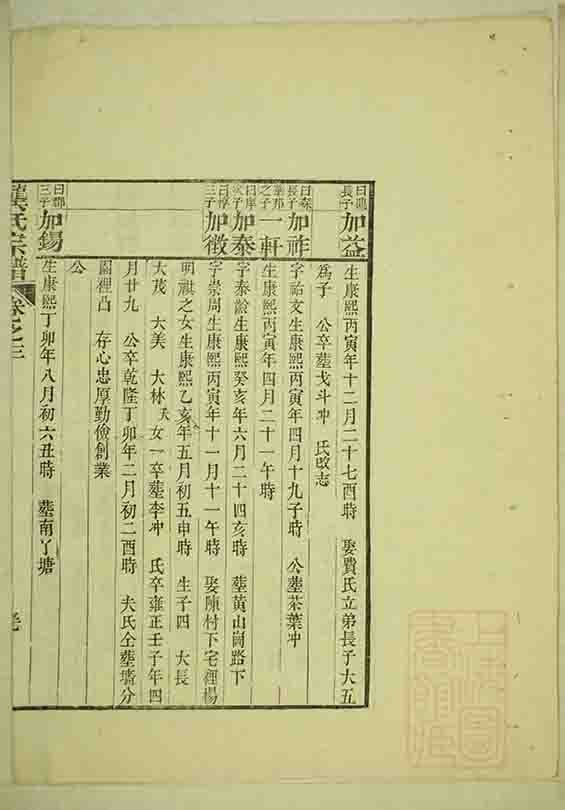 長子 加益 生康熙丙寅年十二月二十七酉時 娶費氏立弟長子大五
爲子 公卒塟戈斗冲 氏改志
長子 加祚 字祐文生康熙丙寅年四月十九子時 公塟茶葉冲
之子 一軒 生康熙丙寅年四月二十一午時
次子 加泰 字泰 生康熙癸亥年六月二十四亥時 塟黄山崗路下
三子 加徵 字崇周生康熙丙寅年十一月十一午時 娶陳村下宅裡楊
明祖之女生康熙乙亥年五月初五申時 生子四 大長
大茂 大美 大林夭 女一卒塟李冲 氏卒雍正壬子年四
月廿九 公卒乾隆丁卯年二月初二酉時 夫氏仝塟塘分
園裡凸 存心忠厚勤儉創業
公
三子 加錫 生康熙丁卯年八月初六丑時 塟南丫塘
龔氏宗譜 卷之三
上海圖書館藏